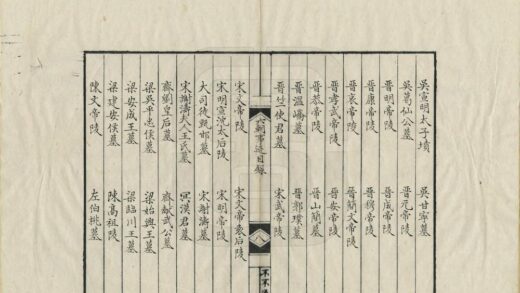 吳宣明太子墳 吳甘寧墓
吳葛仙公墓 晉元帝陵
晉明帝陵 晉成帝陵
晉康帝陵 晉穆帝陵
晉哀帝陵 晉簡文帝陵
晉孝武帝陵 晉安帝陵
晉恭帝陵 晉山簡墓
晉溫嶠墓 晉郭璞墓
晉竺使君墓 宋武帝陵
六朝事迹目錄 八
宋文帝陵 宋文帝袁后陵
宋明宣沈太后陵 宋明帝陵
大司徒甄邯墓 宋謝濤墓
宋謝濤夫人王氏墓 冥漠君墓
齊劉皇后墓 齊献武公墓
梁吳平忠侯墓 梁始興王墓
梁安成王墓 梁臨川王墓
梁建安侯墓 陳高祖陵
陳文帝陵 左伯桃墓